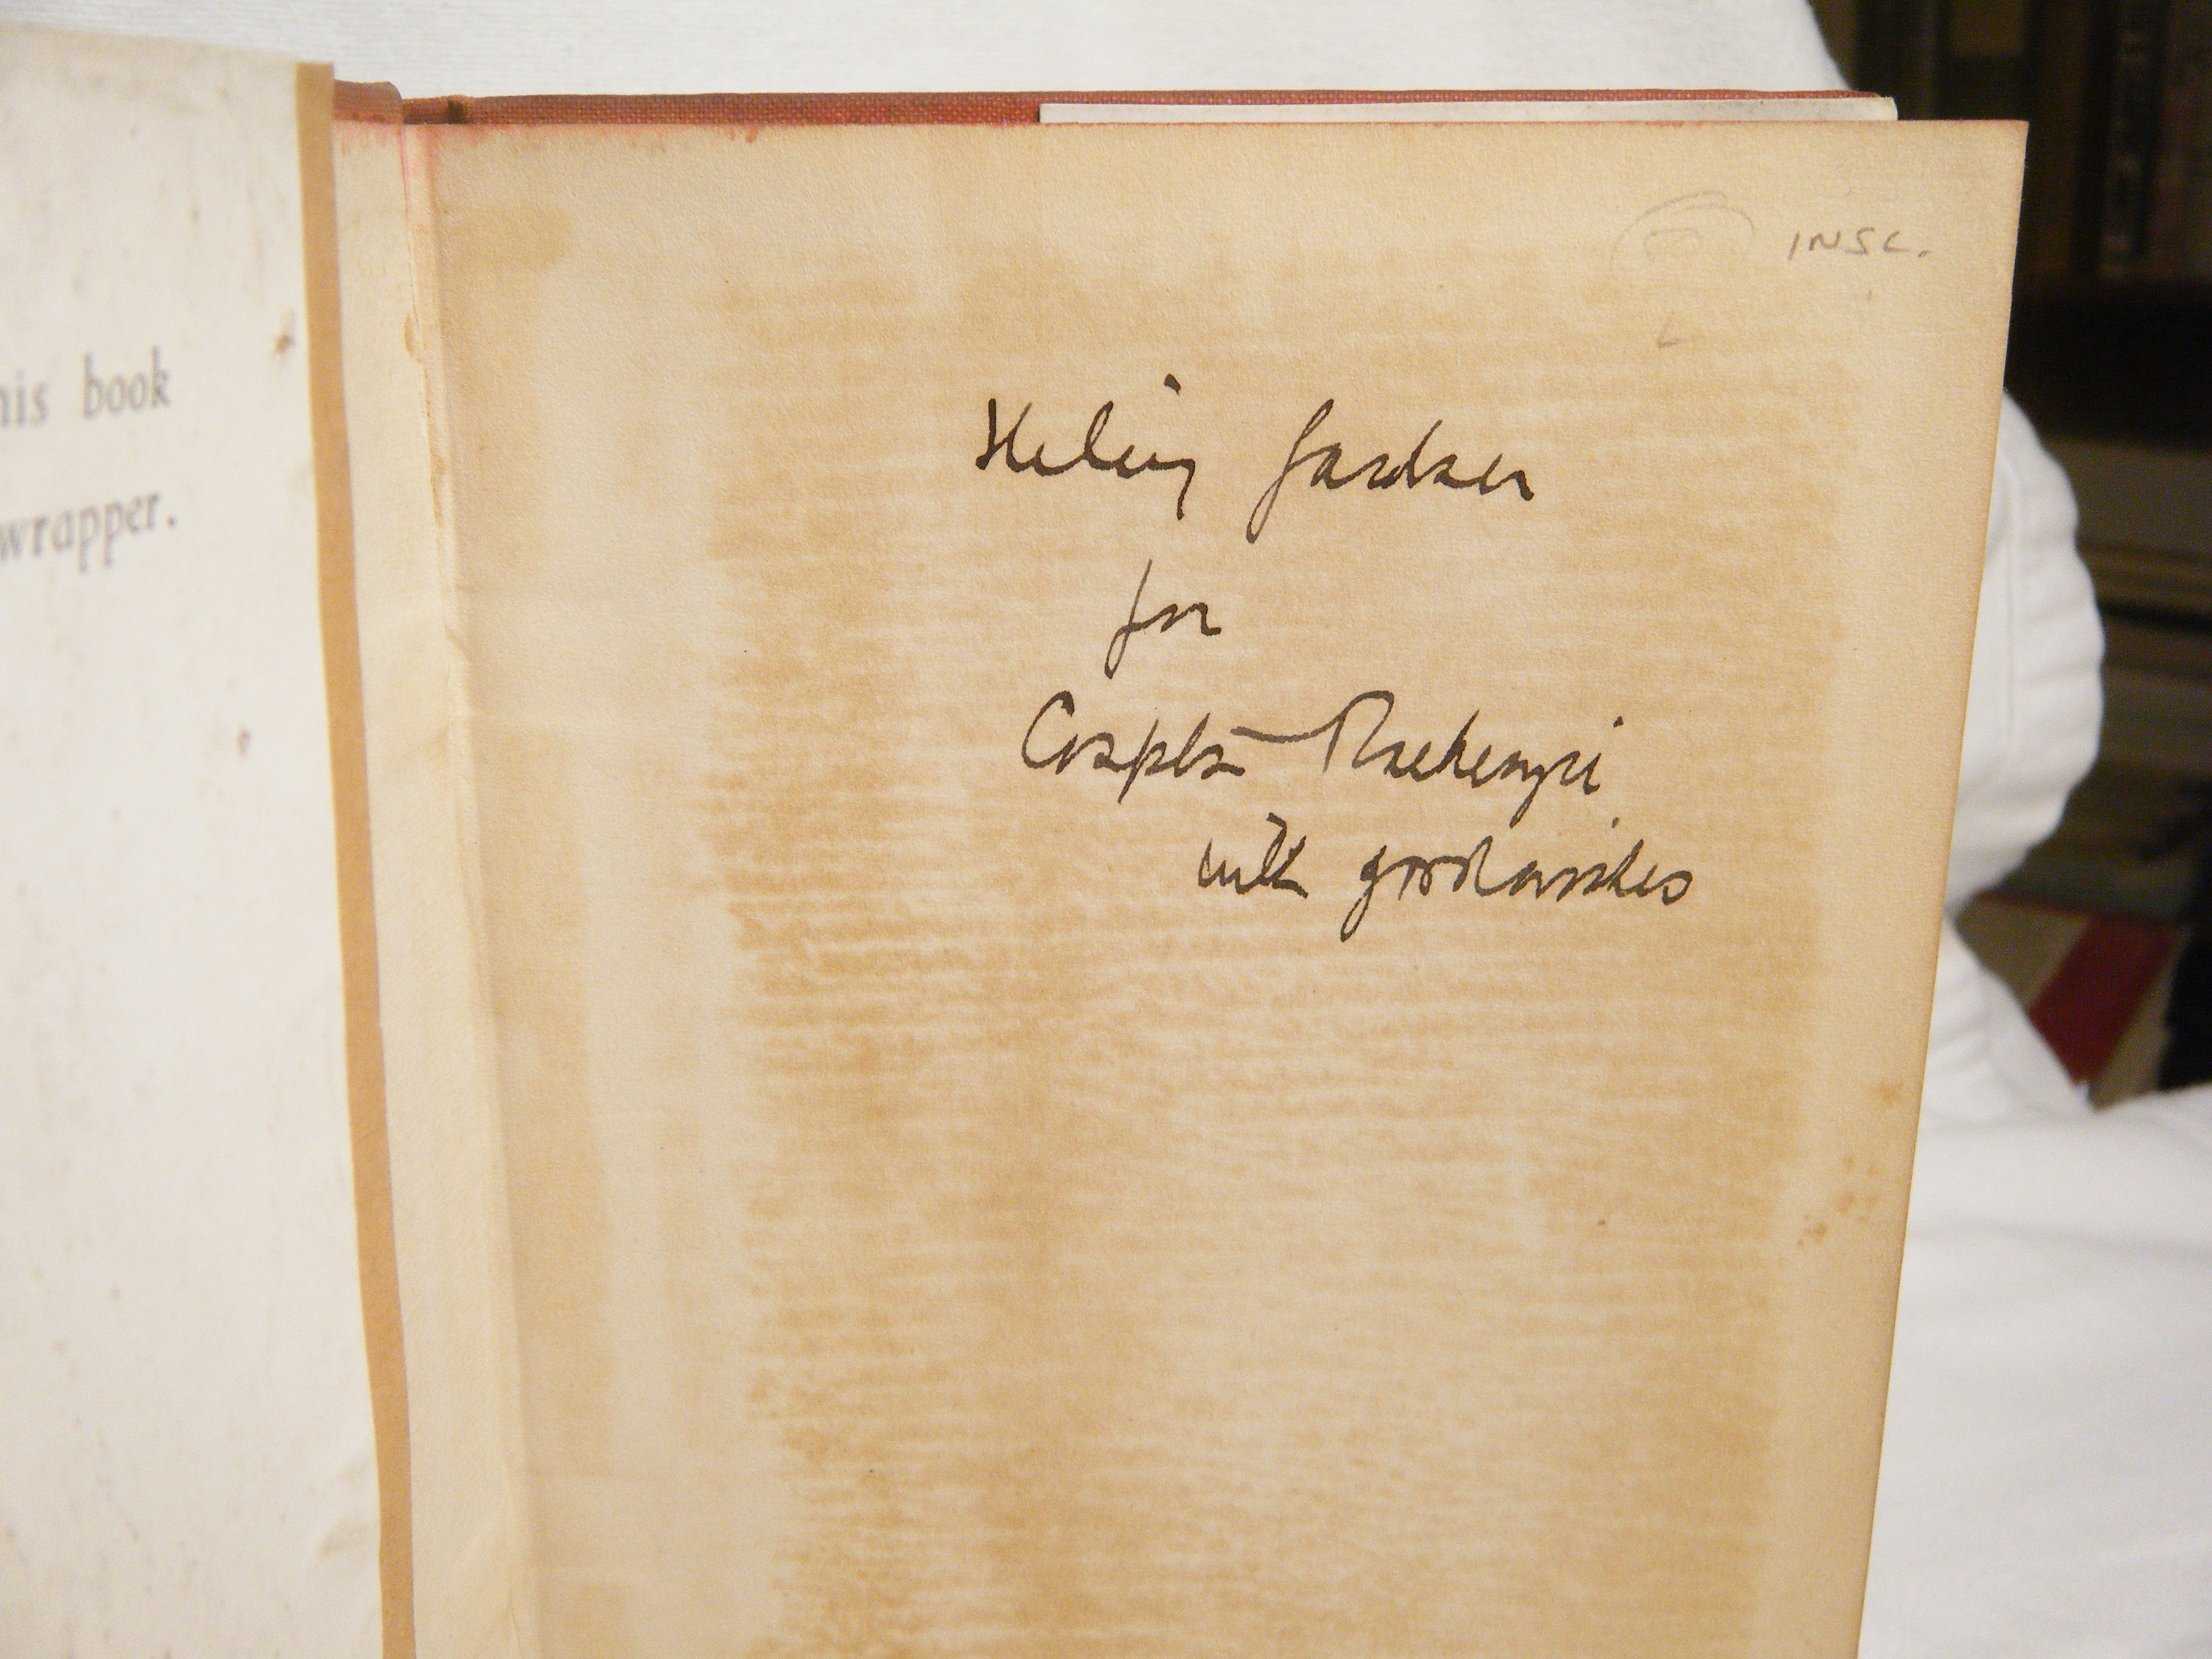 book
wrapper.
INSC.
Gardner
for
Compton Mackenzie
with good wishes